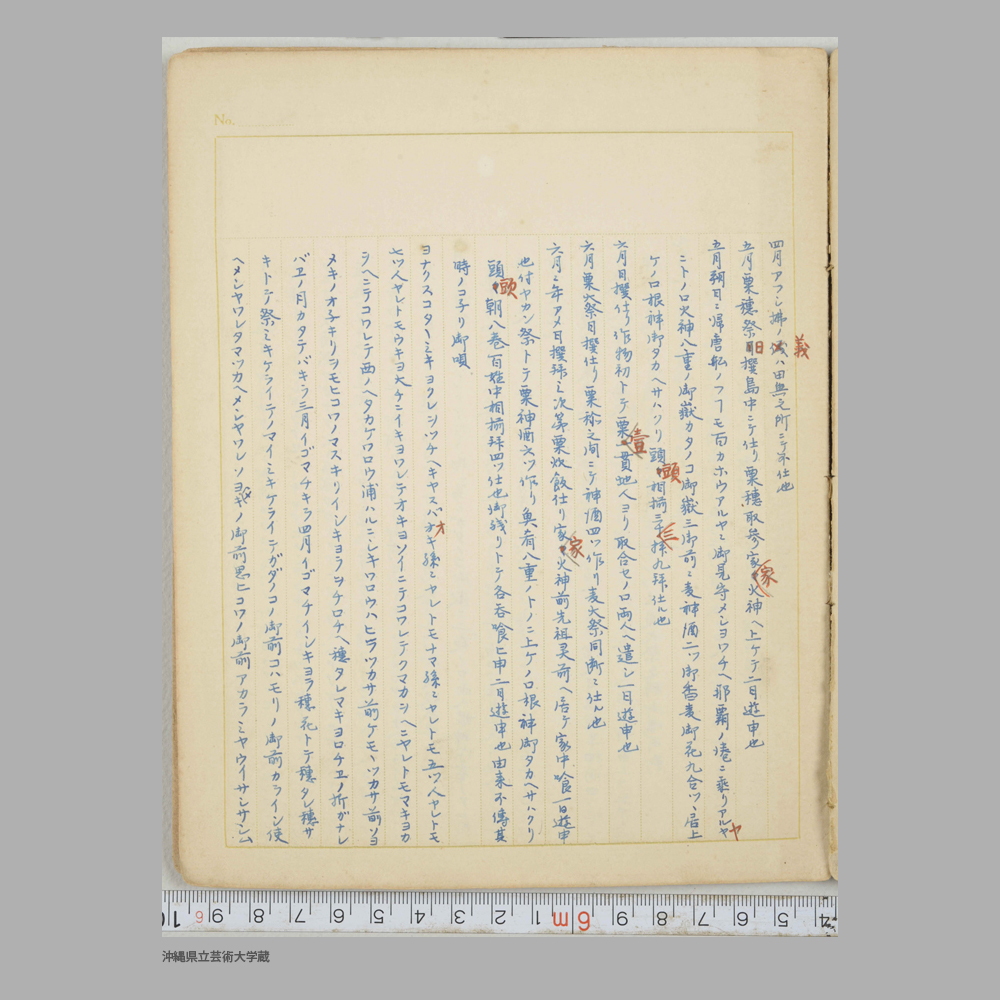 No.
四月アフシ拂ノ義ハ田無之所ニテ不仕也
五月粟穂祭日撰島中ニテ仕リ粟穂取参家々火神ヘ上ケテ二日遊申也
五月朔日ニ帰唐船ノフフモ百カホウアルヤニ御見守メショワチヘ那覇ノ港ニ乘リアルヤ
ニトノロ火神八重ノ御嶽カタノコ御嶽三御前ニ麦神酒二ツ御香麦御花九合ツヽ居上
ケノロ根神御タカヘサハクリ頭々相揃三十拜九拜仕ル也
六月日撰仕リ作物初トテ粟壹貫地人ヨリ取合セノロ両人ヘ遣シ一日遊申也
六月粟大祭日撰仕リ粟称之洵ニテ神酒四ツ作リ麦大祭同断ニ仕ル也
六月ニ年アメ日撰拜之次第粟炊飯仕リ家々火神前先祖灵前ヘ居テ家中喰一日遊申
也付ヤカン祭トテ粟神酒六ツ作リ奠肴八重ノトノニ上ケノロ根神御タカヘサハクリ
頭々朝八巻百姓中相揃拜四ツ仕也御残リトテ各呑喰ヒ申二日遊申也由来不傳其
時ノコ子リ御唄
ヨナクスコターミキヨクレシツチヘキヤスバオキ孫ニヤレトモナマ孫ニヤレトモ五ツ人ヤレトモ
七ツ人ヤレトモウキヨ大チニイキヨワレテオキヨソイニテコワレテクマカシヘニヤレトモマキヨカ
シヘニテコワレテ西ノヘタカケワロウ浦ハルニシキワロウハヒラツカサ前ケモーツカサ前ソヨ
メキノオ子キリヲモヒコワノマスキリイシキヨラヲチロチヘ穂タレマキヨロチヱノ折ガナレ
バヱノ月カタテバキラ三月イゴマチキラ四月イゴマチイシキヨラ穂花トテ穂タレ穂サ
キトテ祭ミキケライテノマイミキケライテガダノコノ御前コハモリノ御前カライン使
ヘメシヤワレタマツカヘメシヤワレソヨメキノ御前思ヒコワノ御前アカラミヤウイサシサシム
義
日
家
ヤ
頭
三
壹
家
頭
オ
沖縄県立芸術大学蔵